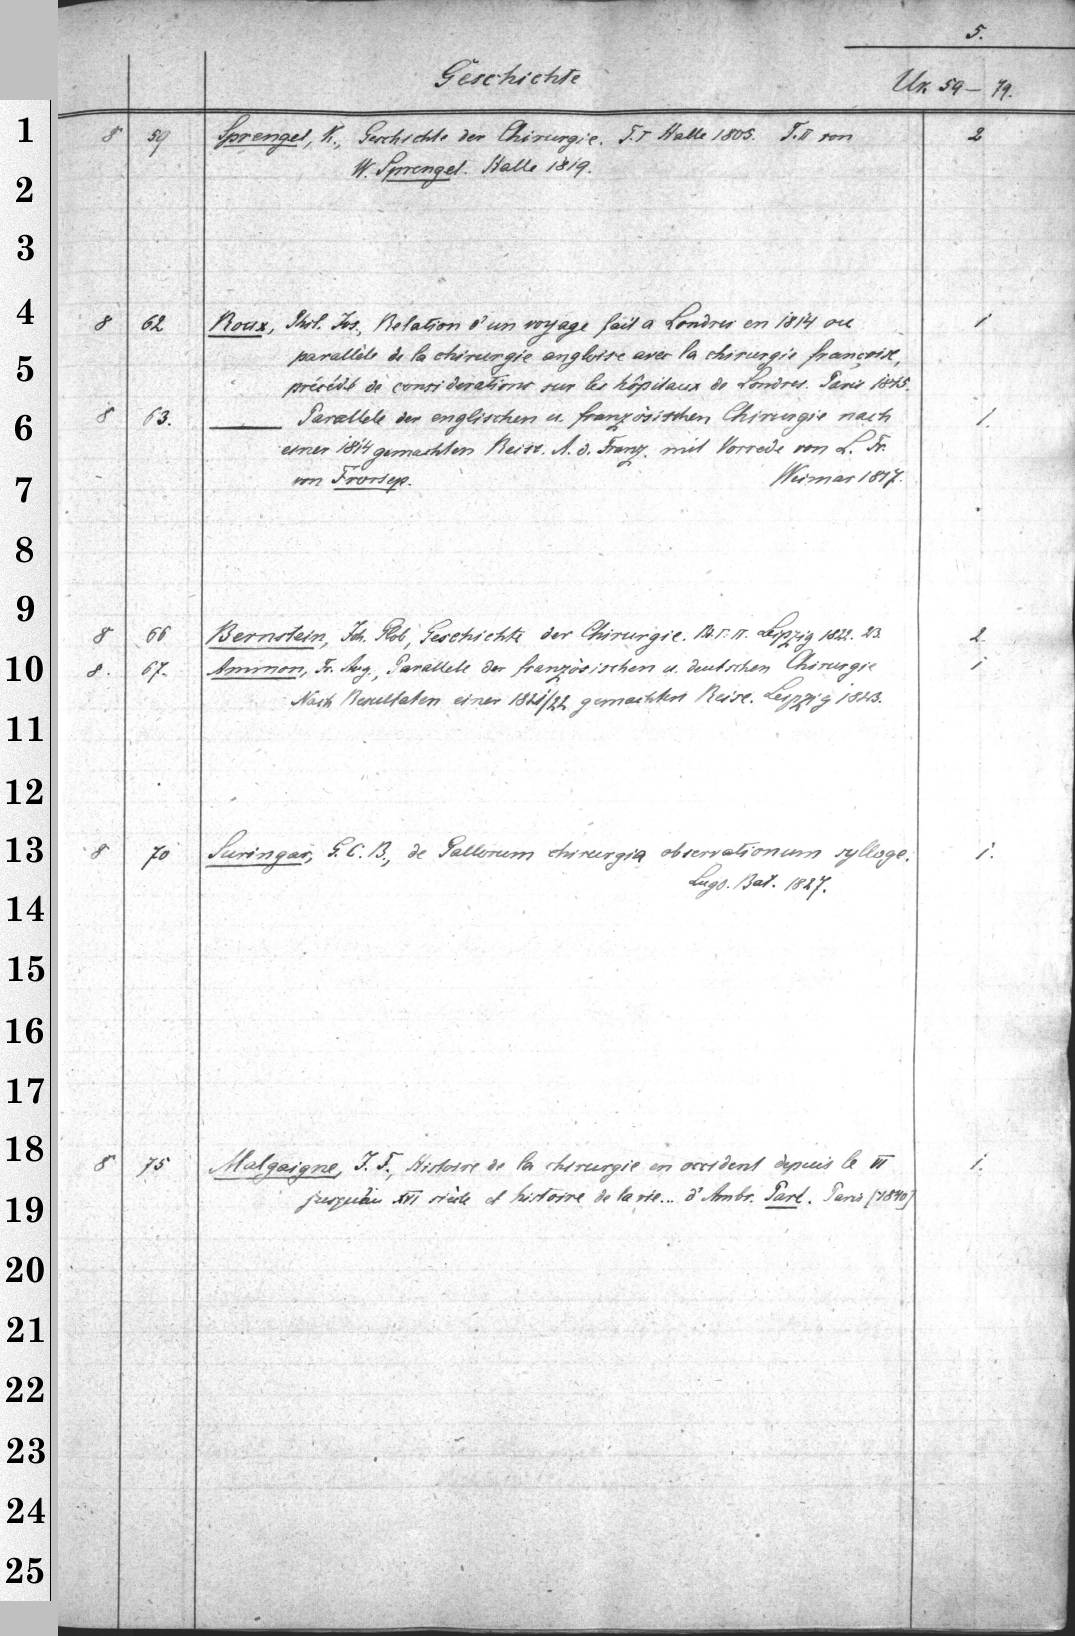 5.
Geschichte Ux 59-79.
1 8 59 Sprengel, K., Geschichte der Chirurgie. T.I Halle 1805. T.II von 2
2 W. Sprengel. Halle 1819.
3
4 8 62 Roux, Phil. Jos., Relation d'un voyage fait a Londres en 1814 ou 1
5 parallèle de la chirurgie angloise avec la chirurgie françoise,
précédé de considerations sur les hôpitaux de Londres. Paris 1815.
6 8 63. ——— Parallele der englischen u. französischen Chirurgie nach 1.
einer 1814 gemachten Reise. A. d. Franz. mit Vorrede von L. Fr.
7 von Froriep. Weimar 1817.
8
9 8 66 Bernstein, Joh. Glob, Geschichte der Chirurgie. Th. I. II. Leipzig 1822. 23. 2
10 8. 67. Ammon, Fr. Aug., Parallele der französischen u. deutschen Chirurgie 1
Nach Resultaten einer 1821/22 gemachten Reise. Leipzig 1823.
11
12
13 8 70 Suringar, G. C. B., de Gallorum chirurgia observationum sylloge. 1.
14 Lugd. Bat. 1827.
15
16
17
18 8 75 Malgaigne, J. F., Histoire de la chirurgie en occident depuis le VI 1.
19 jusqu'au XVI siècle et histoire de la vie... d'Ambr. Paré. Paris [1840]
20
21
22
23
24
25